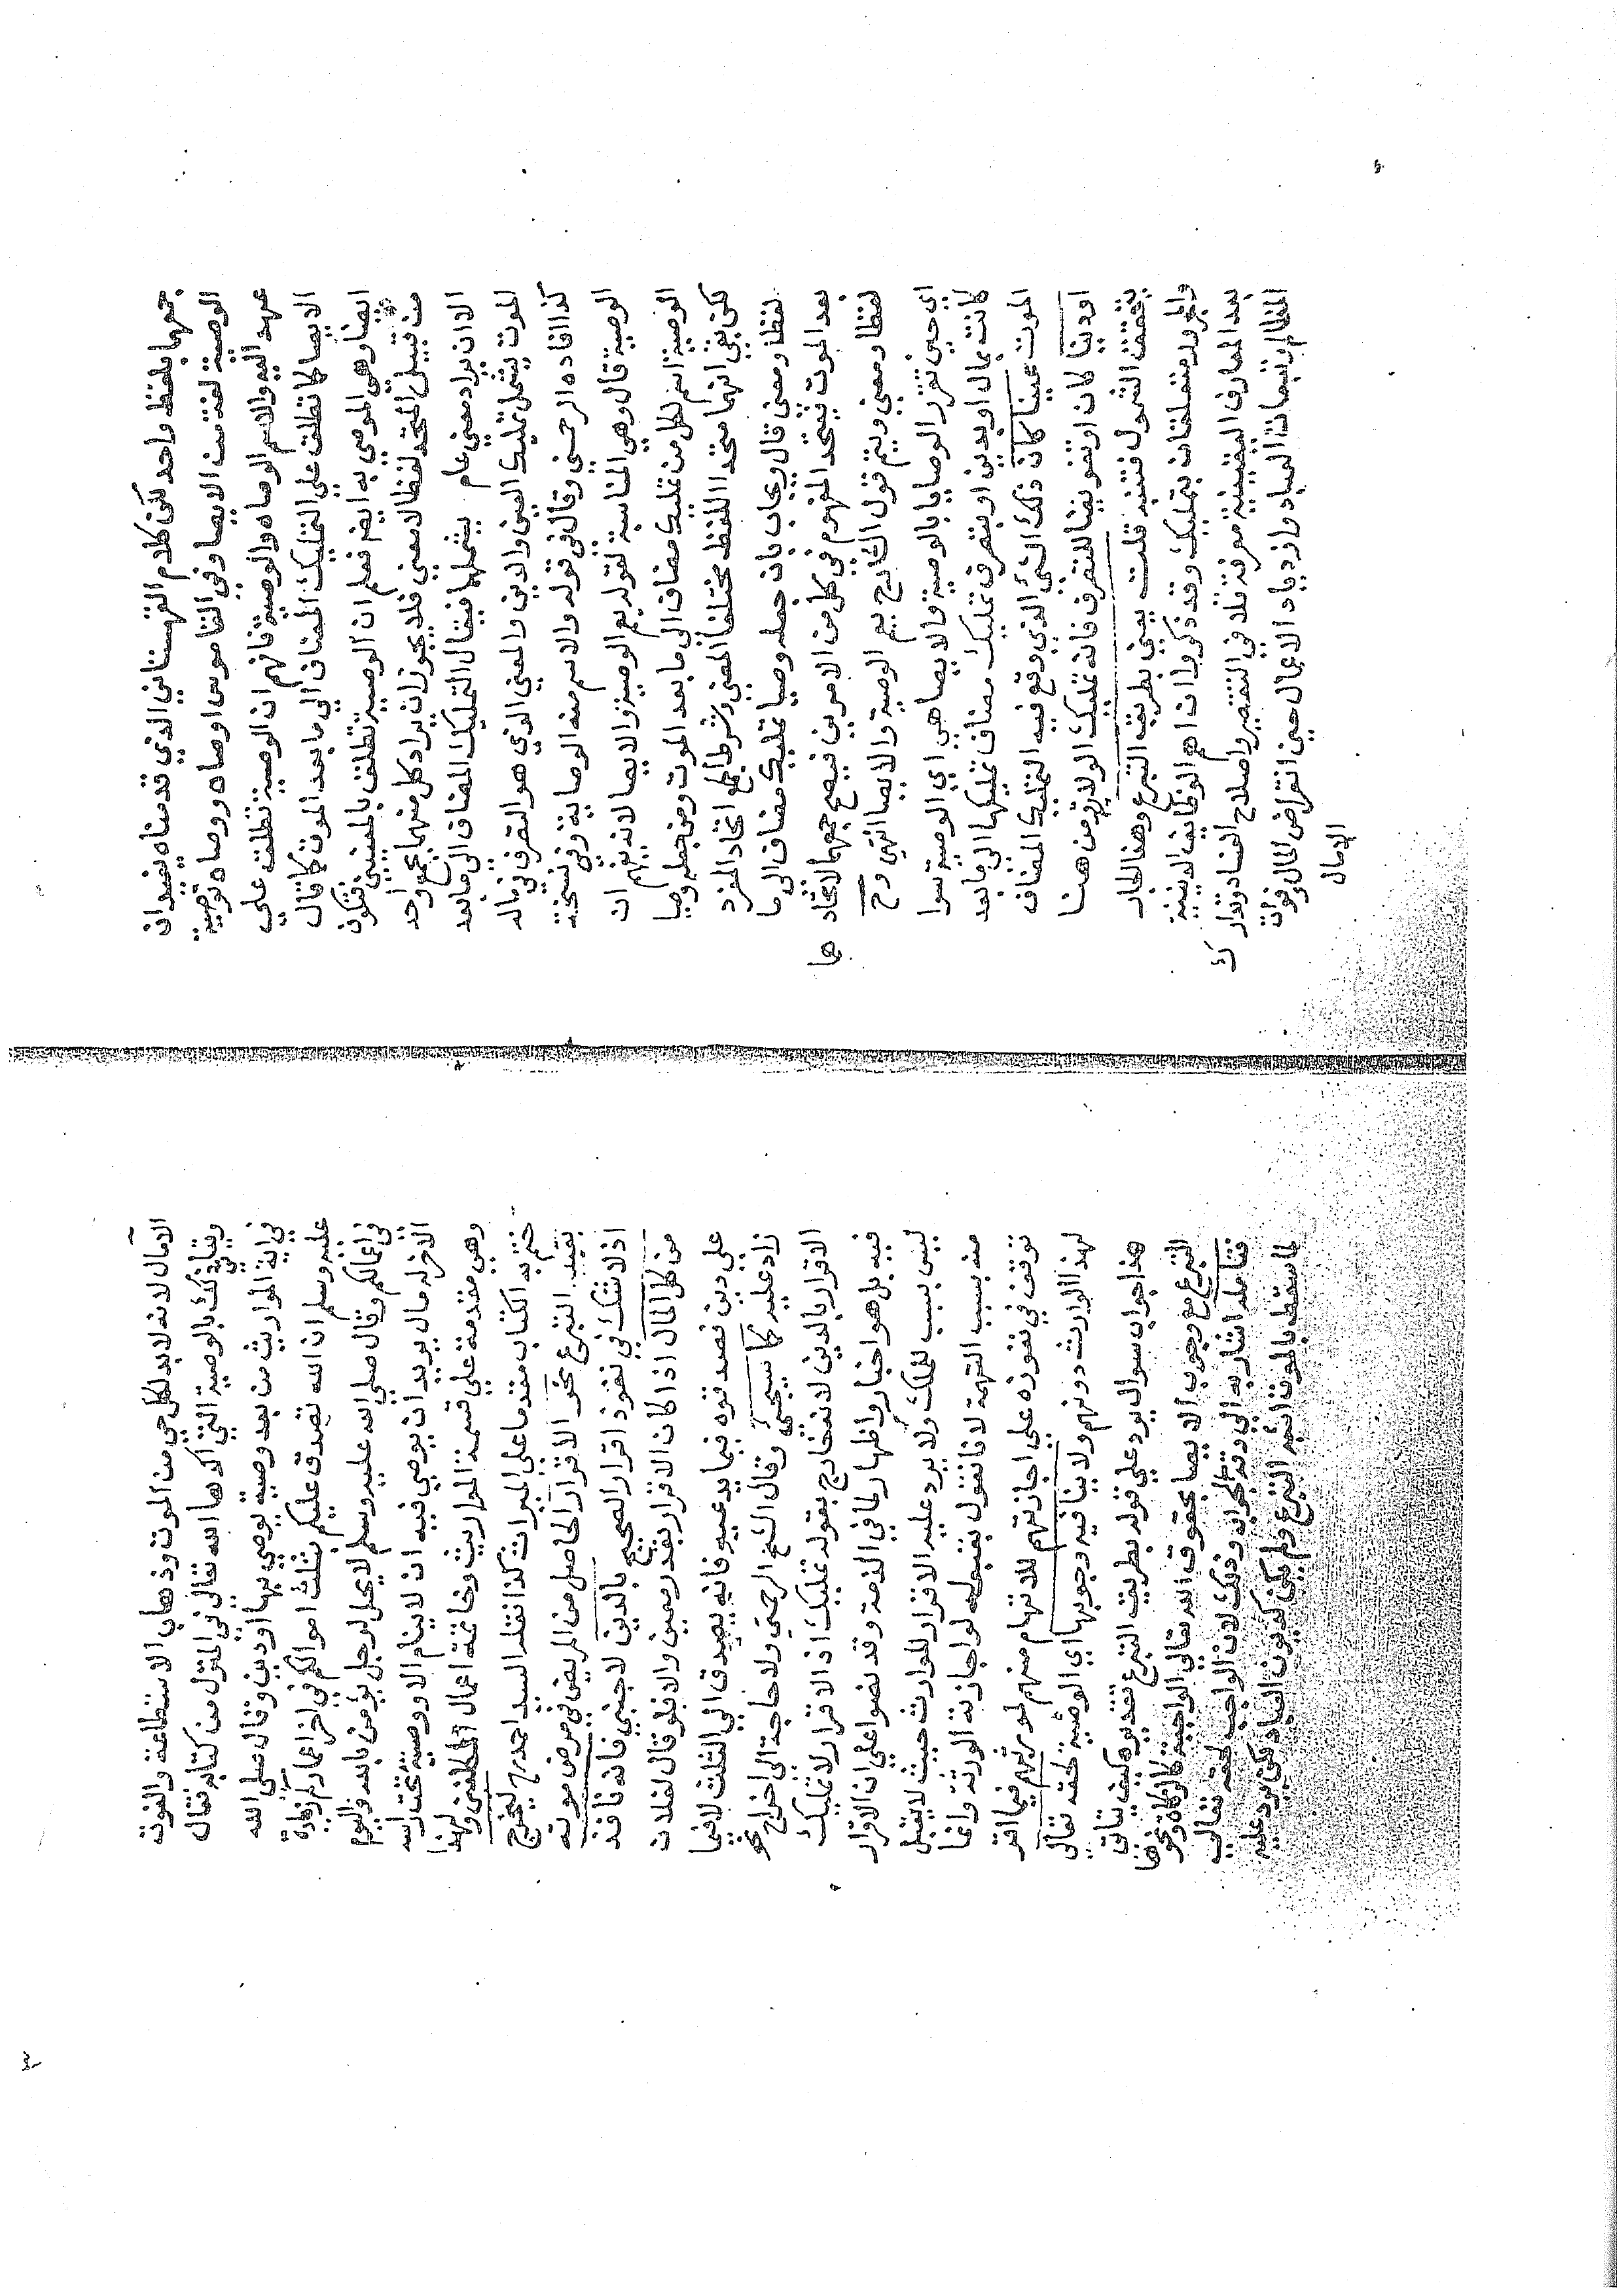 جمعهما بلفظ واحد لكن كلام القهستاني الذي قدمناه يفيد ان
الوصية لغة من الايصا وفي القاموس اوصاه ووصاه توصية
عهد اليه والاسم الوصاه والوصية فافهم ان الوصية تطلق على
الايصا كما تطلق على التمليك المضاف الى ما بعد الموت كما قال
ايضا وهي الموصى به ايضا فعلم ان الوصية تطلق بالمعنيين فتكون
من قبيل المتحد لفظا لا معنى فلا يجوز ان يراد كل منهما بجمع واحد
الا ان يراد معنى عام يشملهما فيقال التمليك المضاف الى ما بعد
الموت يشمل تمليك العين والدين والمعنى الذي هو التصرف في ماله
كذا افاده الرحمتي وقال في قوله والاسم منه الوصاية وفي نسخة
الوصية قال وهي المناسبة لقوله يعم الوصية والايصا لانه يفهم ان
الوصية اسم لكل من تمليك مضاف الى ما بعد الموت ومن جعله وصيا
لكن بقي انهما متحدا اللفظ مختلفا المعنى وشرط الجمع اتحاد المفرد
لفظا ومعنى قال ويجاب بان جعله وصيا تمليك مضاف الى ما
بعد الموت فيتحد المفهوم في كل من الامرين فيصح جمعهما لاتحاد
هما
لفظا ومعنى ويتم قول الشارح يعم الوصية والايصا انتهى وح
اي حين تقرر الوصايا بالوصية والايصا هي اي الوصية سوا
كانت بمال او بدين او بتصرف تمليك مضاف تمليكها الى ما بعد
الموت عينا كان ذلك الشي الذي وقع فيه التمليك المضاف
او دينا كان او تفويضا للتصرف فانه تمليك الولاية من هنا
يتحقق الشمول فتنبه قلت يعني بطريق التبرع وهذا الجار
والمجرور متعلقان بتمليك وقد ذكروا ان اهم الوظايف الدينية
بعد المعارف اليقينية معرفة تلافي التقصير واصلاح الفساد وتدارك
المظالم وتبعات العباد وازدياد الاعمال حين انقراض المال وفوات
الامال
الآمال لانه لا بد لكل حي من الموت وذهاب الاستطاعة والفوت
ويتلافى ذلك بالوصية التي اكدها الله تعالى في المنزل من كتابه فقال
في اية المواريث من بعد وصية يوصي بها او دين وقال صلى الله
عليه وسلم ان الله تصدق عليكم بثلث اموالكم في اخر اعماركم زيادة
في اعمالكم وقال صلى الله عليه وسلم لا يحل لرجل يؤمن بالله واليوم
الاخر له مال يريد ان يوصي فيه ان لا ينام الا ووصيته تحت راسه
وهي مقدمة على قسمة المواريث وخاتمة اعمال المكلفين ولهذا
ختم به الكتاب مقدما على الميراث كذا نقله السيد احمد رح ليخرج
بقيد التبرع نحو الاقرار الحاصل من المريض في مرض موته
اذ لا شك في نفوذ اقرار الصحيح بالدين لاجنبي فانه نافذ
من كل المال اذا كان الاقرار بقدر معين والا فلو قال لفلان
علي دين فصدقوه فيما يدعيه فانه يصدق الى الثلث لا فيما
زاد عليه كما سيجيء وقال الشيخ الرحمتي ولا حاجة الى اخراج نحو
الاقرار بالدين لانه خارج بقوله تمليك اذ الاقرار لا تمليك
فيه بل هو اخبار واظهار لما في الذمة وقد نصوا على ان الاقرار
ليس بسبب للملك ولا يرد عليه الاقرار للوارث حيث لا يقبل
منه بسبب التهمة لانا نقول بقبوله لو اجازته الورثة وانما
توقف في نفوذه على اجازتهم للاتهام منهم لمورثهم فيما اقر
لهذا الوارث دونهم ولا ينافيه وجوبها اي الوصية لحقه تعالى
هذا جواب سوال يرد على قوله بطريق التبرع تقديره كيف يتاتى
التبرع مع وجوب الايصا بحقوق الله تعالى الواجبة كالزكاة ونحوها
فتامله اشار به الى دقة الجواب وذلك لان الواجب لحقه تعالى
لما سقط بالموت اشبه التبرع ولم يكن كديون العباد لكن يرد عليه